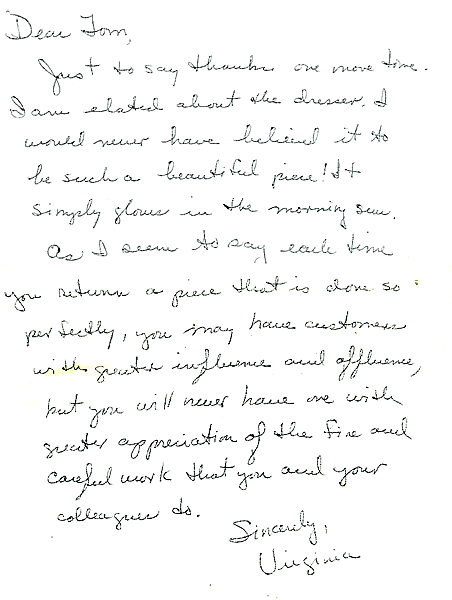 Dear Tom,
Just to say thanks one more time.
I am elated about the dresser. I
would never have believed it to
be such a beautiful piece! It
simply glows in the morning sun.
As I seem to say each time
you return a piece that is done so
perfectly, you may have customers
with greater influence and affluence,
but you will never have one with
greater appreciation of the fine and
careful work that you and your
colleagues do.
Sincerely,
Virginia